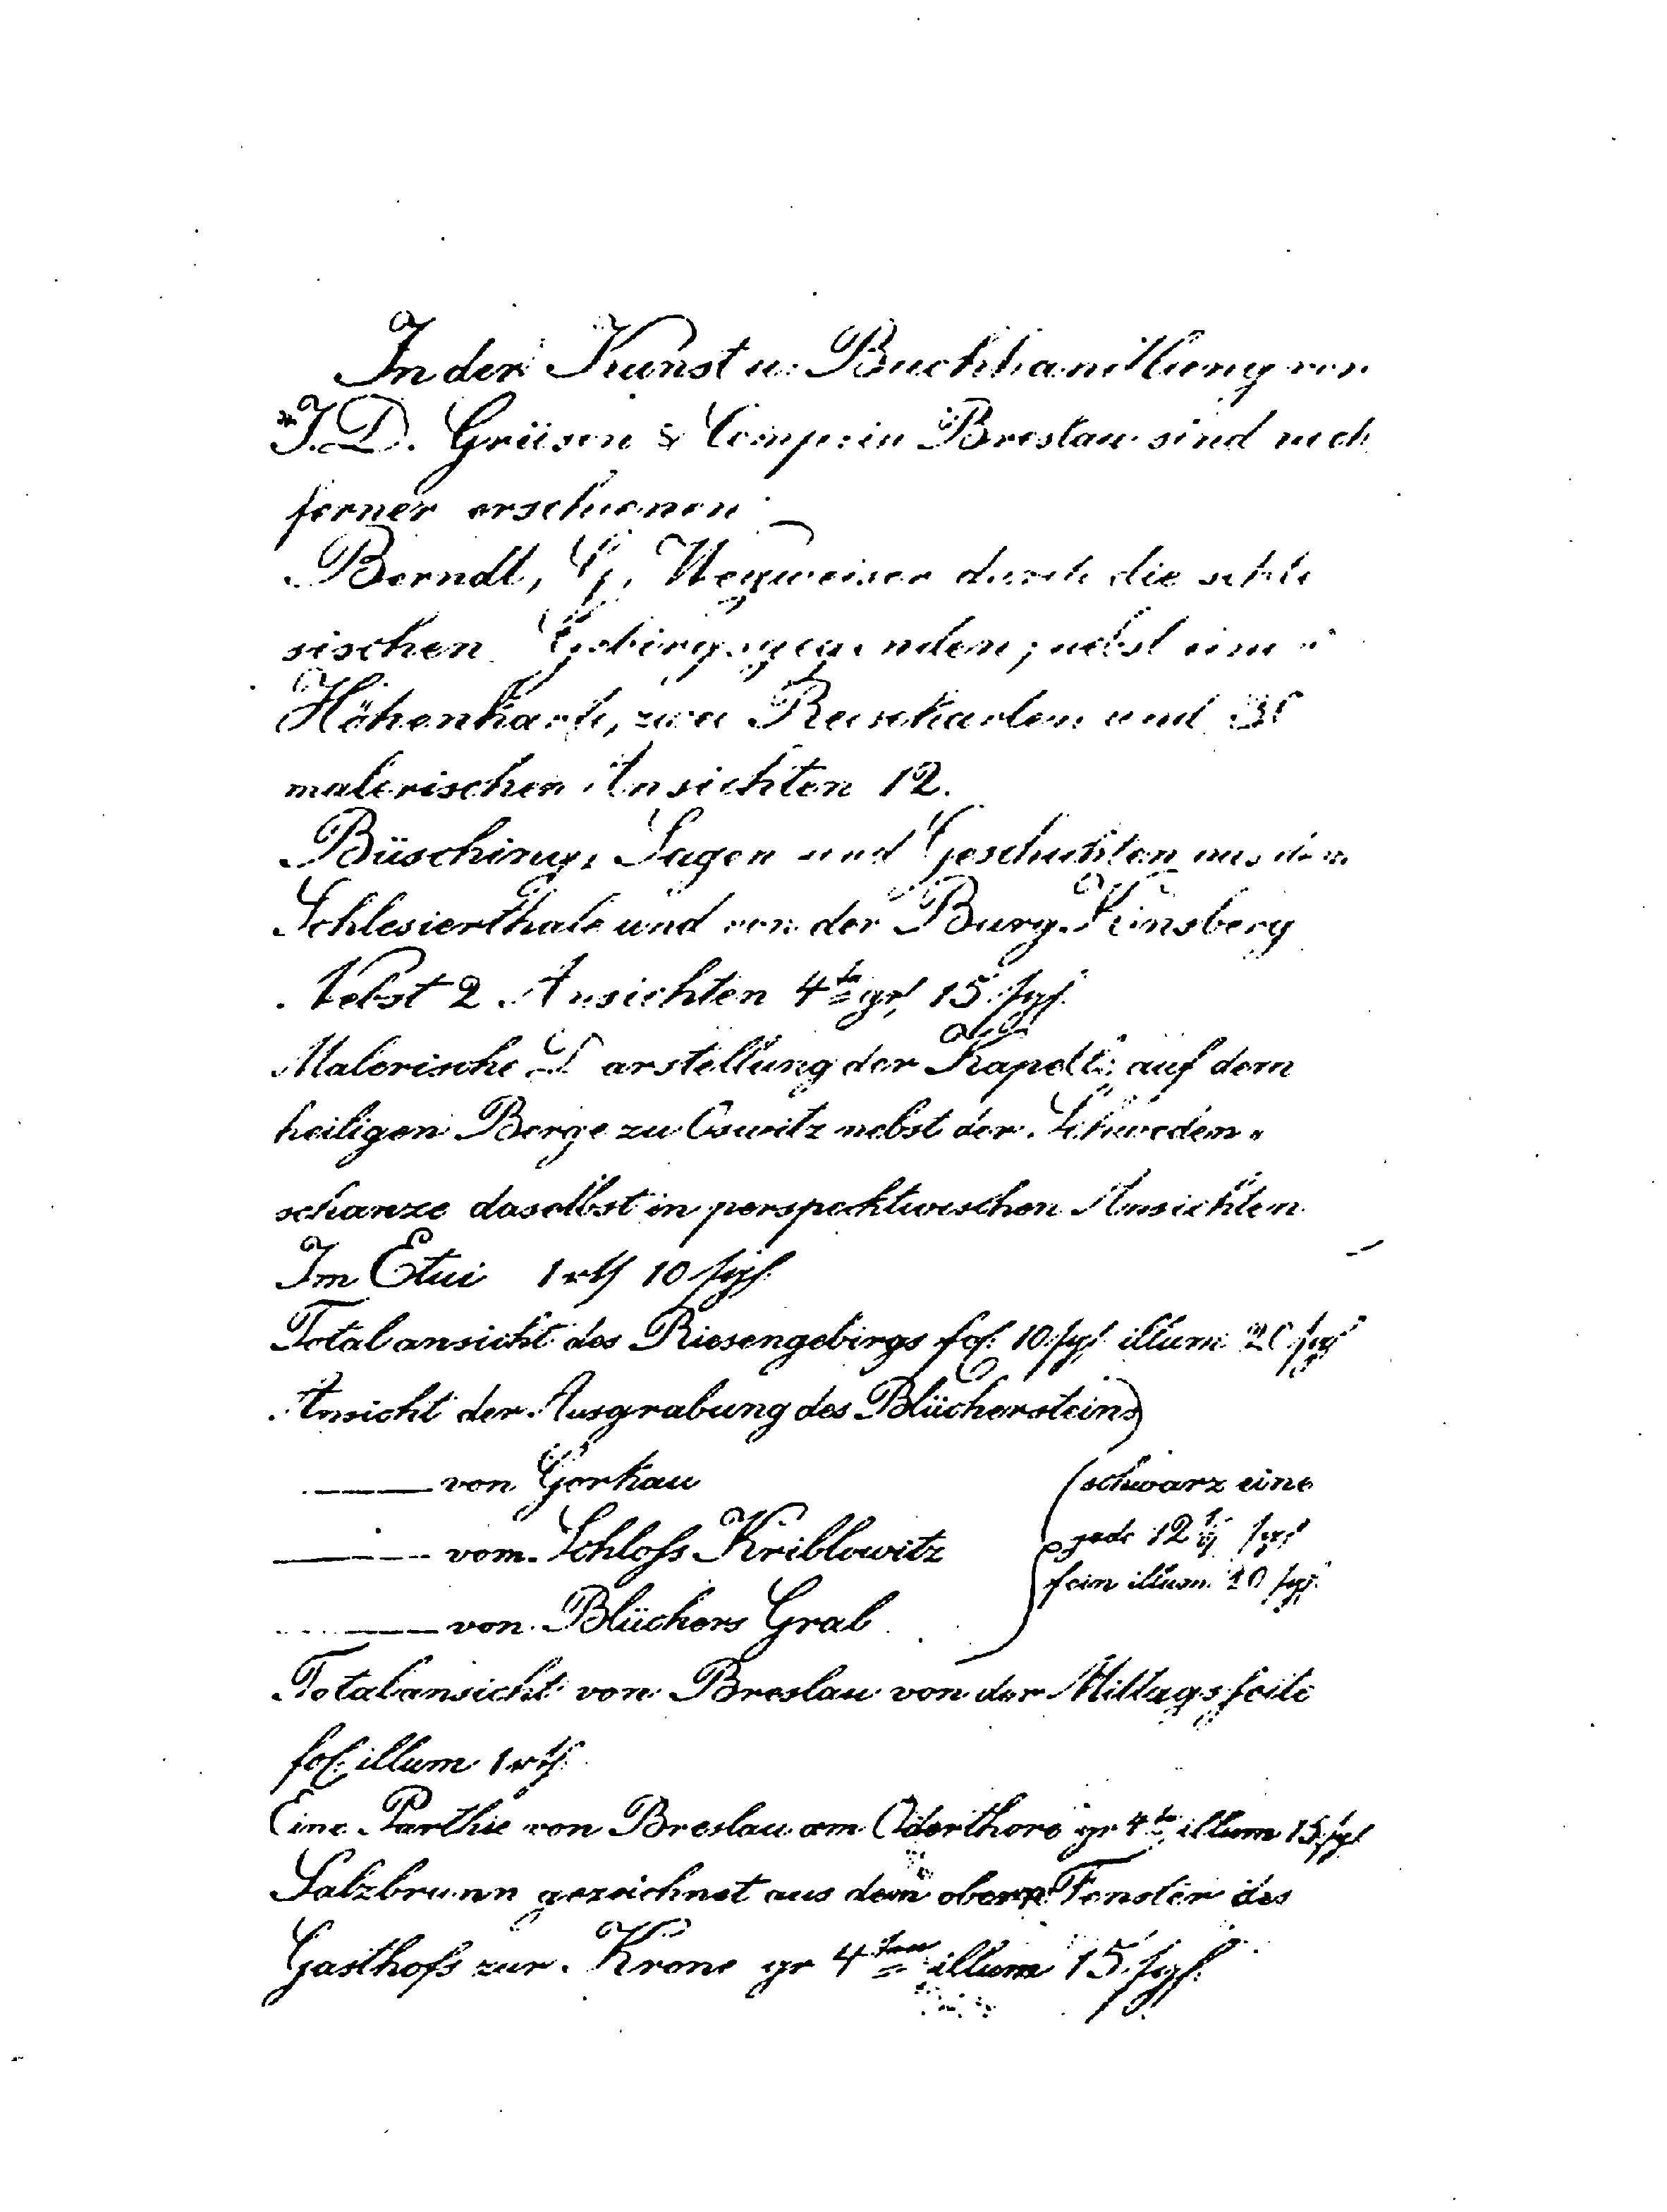 In der Kunst u: Buchhandlung von
J. D. Grüson & Comp: in Breslau sind noch
ferner erschienen
Berndt, G, Wegweiser durch die schle
sischen Gebirgsgegenden; nebst einer
Höhenkarte, zwei Reisekarten und
malerischen Ansichten 12.
Büsching, Sagen und Geschichten aus dem
Schlesierthale und von der Burg Kinsberg
Nebst 2 Ansichten 4to gr, 15 sgl.
Malerische Darstellung der Kapelle auf dem
heiligen Berge zu Oswitz nebst der Schweden-
schanze daselbst in perspecktivischen Ansichten
Im Etui 1 rtl 10 sgl.
Totalansicht des Riesengebirgs fol. 10 sgl. illum 20 sgl
Ansicht der Ausgrabung des Blüchersteins
—— von Gorkau
—— vom Schloss Kriblowitz
—— von Blüchers Grab
schwarz eine
jede 12 ½ sgl
fein illum. 20 sgl.
Totalansicht von Breslau von der Mittagsseite
fol. illum 1 rtl.
Eine Parthie von Breslau am Oderthore gr 4to illum 15 sgl
Salzbrunn gezeichnet aus dem obern Fenster des
Gasthofs zur Krone gr 4to illum 15 sgl.